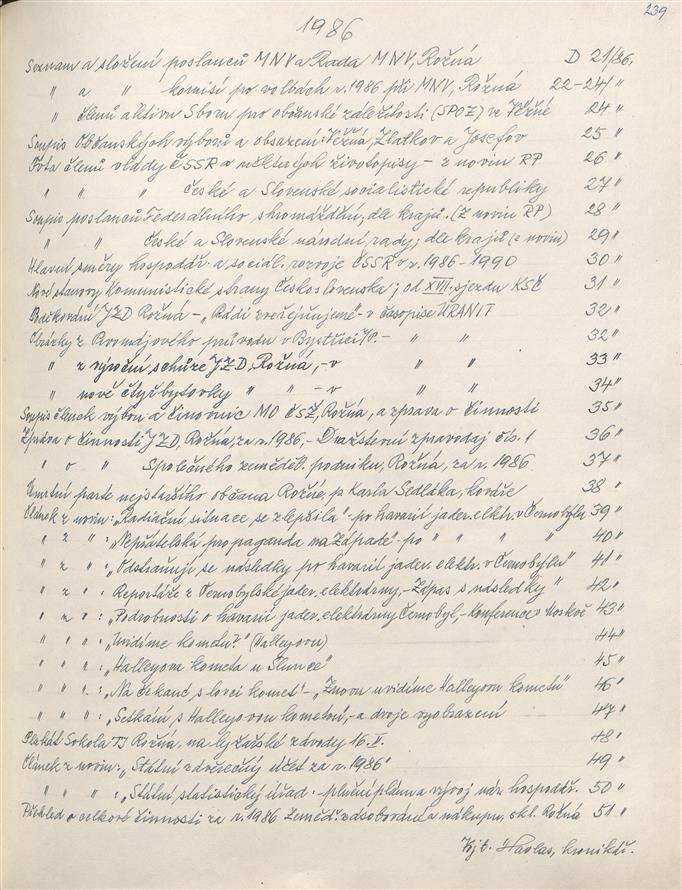 239
1986
Seznam a složení poslanců MNV a Rada MNV, Rožná D 21/86.
" a " komisí po volbách r. 1986 při MNV, Rožná 22-24/"
" členů aktivu Sboru pro občanské záležitosti (SPOZ) ve Věžné 24 "
Soupis Občanských výborů a obsazení: Věžná, Zlatkov a Josefov 25 "
Fota členů vlády ČSSR a některých životopisy - z novin RP 26 "
" " " České a Slovenské socialistické republiky 27 "
Soupis poslanců Federálního shromáždění, dle krajů. (z novin RP) 28 "
" " České a Slovenské národní rady; dle krajů (z novin) 29 "
Hlavní směry hospodář. a sociál. rozvoje ČSSR v r. 1986-1990 30 "
Nové stanovy Komunistické strany Československa; od XVII. sjezdu KSČ 31 "
Poděkování JZD Rožná - „Rádi zveřejňujeme" - v časopise URANIT 32 "
Obrázky z Prvomájového průvodu v Bystřici n/P. - " " 32 "
" z výroční schůze JZD, Rožná, - v " " 33 "
" nové čtyřbytovky " " - v " " 34 "
Soupis členek výboru a činovnic MO ČSŽ, Rožná, a zpráva o činnosti 35 "
Zpráva o činnosti JZD, Rožná, za r. 1986, - Družstevní zpravodaj čís. 1 36 "
" o " Společného zeměděl. podniku, Rožná, za r. 1986 37 "
Smuteční parte nejstaršího občana Rožné, p. Karla Sedláka, kováře 38 "
Článek z novin: „Radiační situace se zlepšila" - po havarii jader. elektr. v Černobylu 39 "
" z " : „Nepřátelská propaganda na Západě" - po " " " " 40 "
" z " : „Odstraňují se následky po havarii jader. elektr. v Černobylu" 41 "
" z " : Reportáže z Černobylské jader. elektrárny, - „Zápas s následky" 42 "
" z " : „Podrobnosti o havarii jader. elektrárny Černobyl, - Konference v Moskvě 43 "
" " " : „Uvidíme kometu?" (Halleyovu) 44 "
" " " : „Halleyova kometa u Slunce" 45 "
" " " : „Na čekané s lovci komet" - „Znovu uvidíme Halleyovu kometu" 46 "
" " " : „Setkání s Halleyovou kometou, - a dvoje vyobrazení 47 "
Plakát Sokola TJ Rožná, na lyžařské závody 16. II. 48 "
Článek z novin: „Státní závěrečný účet za r. 1986" 49 "
" " " : „Státní statistický úřad: - plnění plánu a vývoj nár. hospodář. 50 "
Přehled o celkové činnosti za r. 1986 Zeměď. zásobování a nákupu, skl. Rožná 51 "
Vyb. Havlas, kronikář.